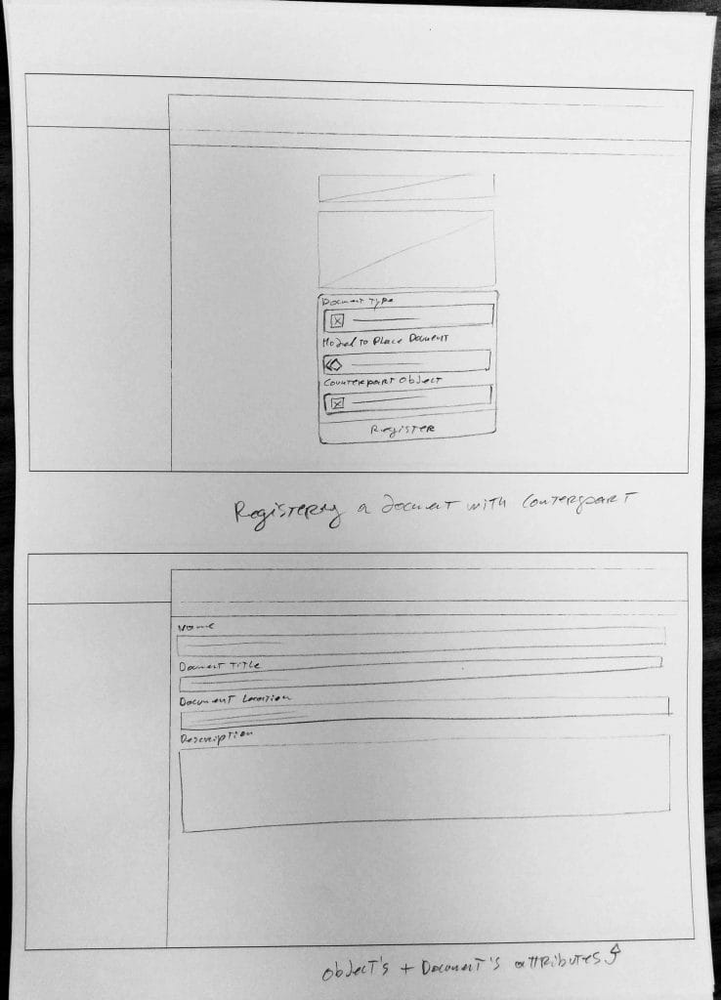 Document Type
Model to Place Document
Counterpart Object
Register
Registering a document with Counterpart
Name
Document Title
Document Location
Description
Object's + Document's attributes